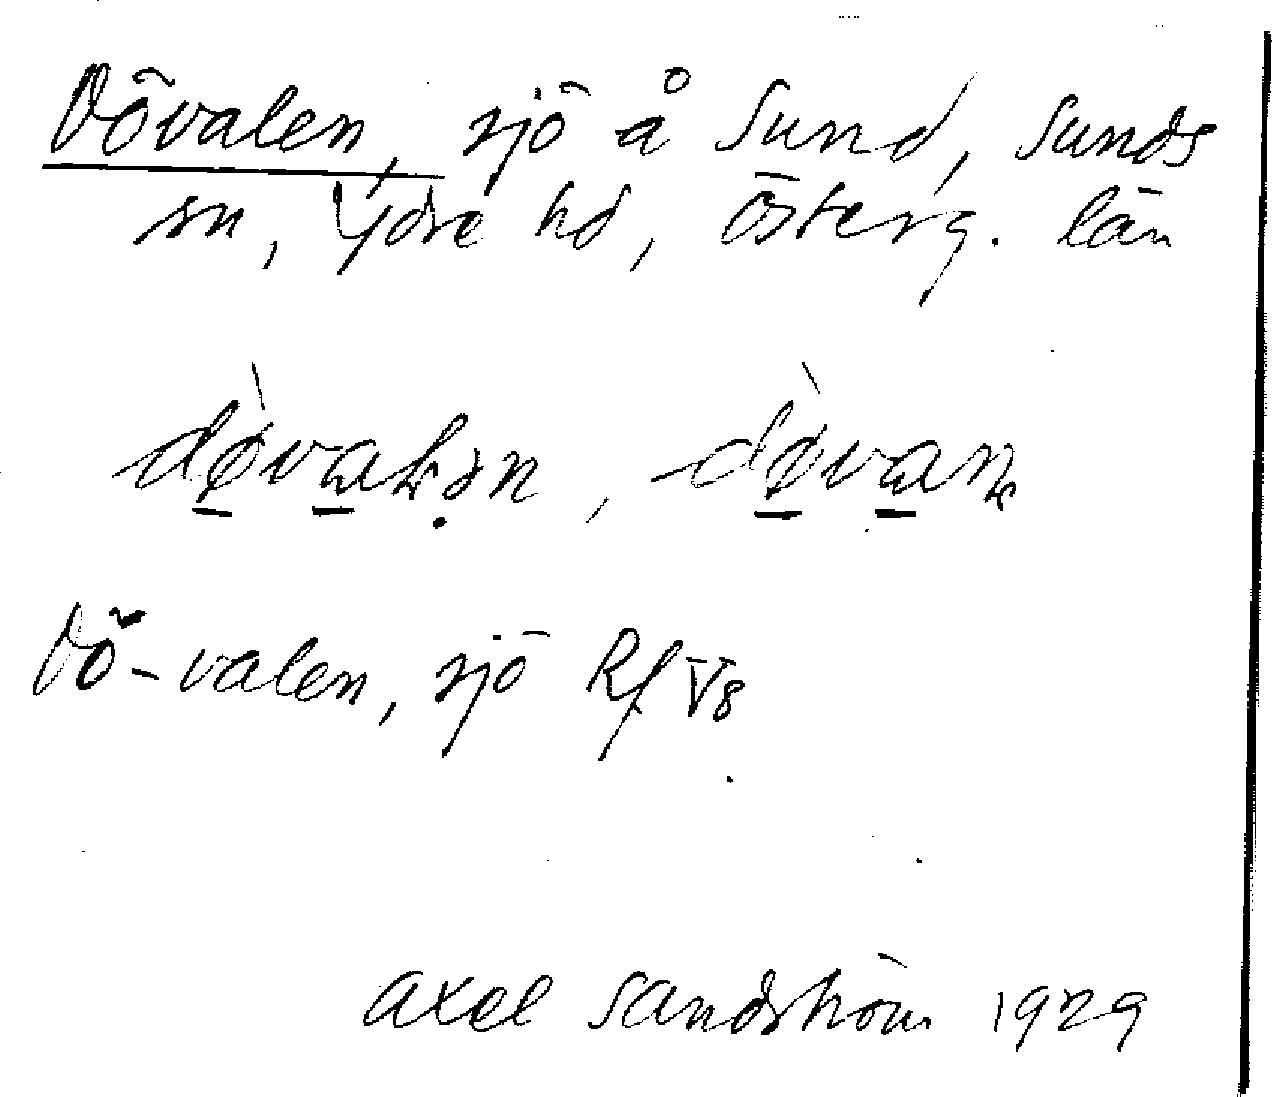 Dövalen, sjö å Sund, Sunds
sn, Ydre hd, Österg. län
Dö-valen, sjö Rf V8
Axel Sandström 1929